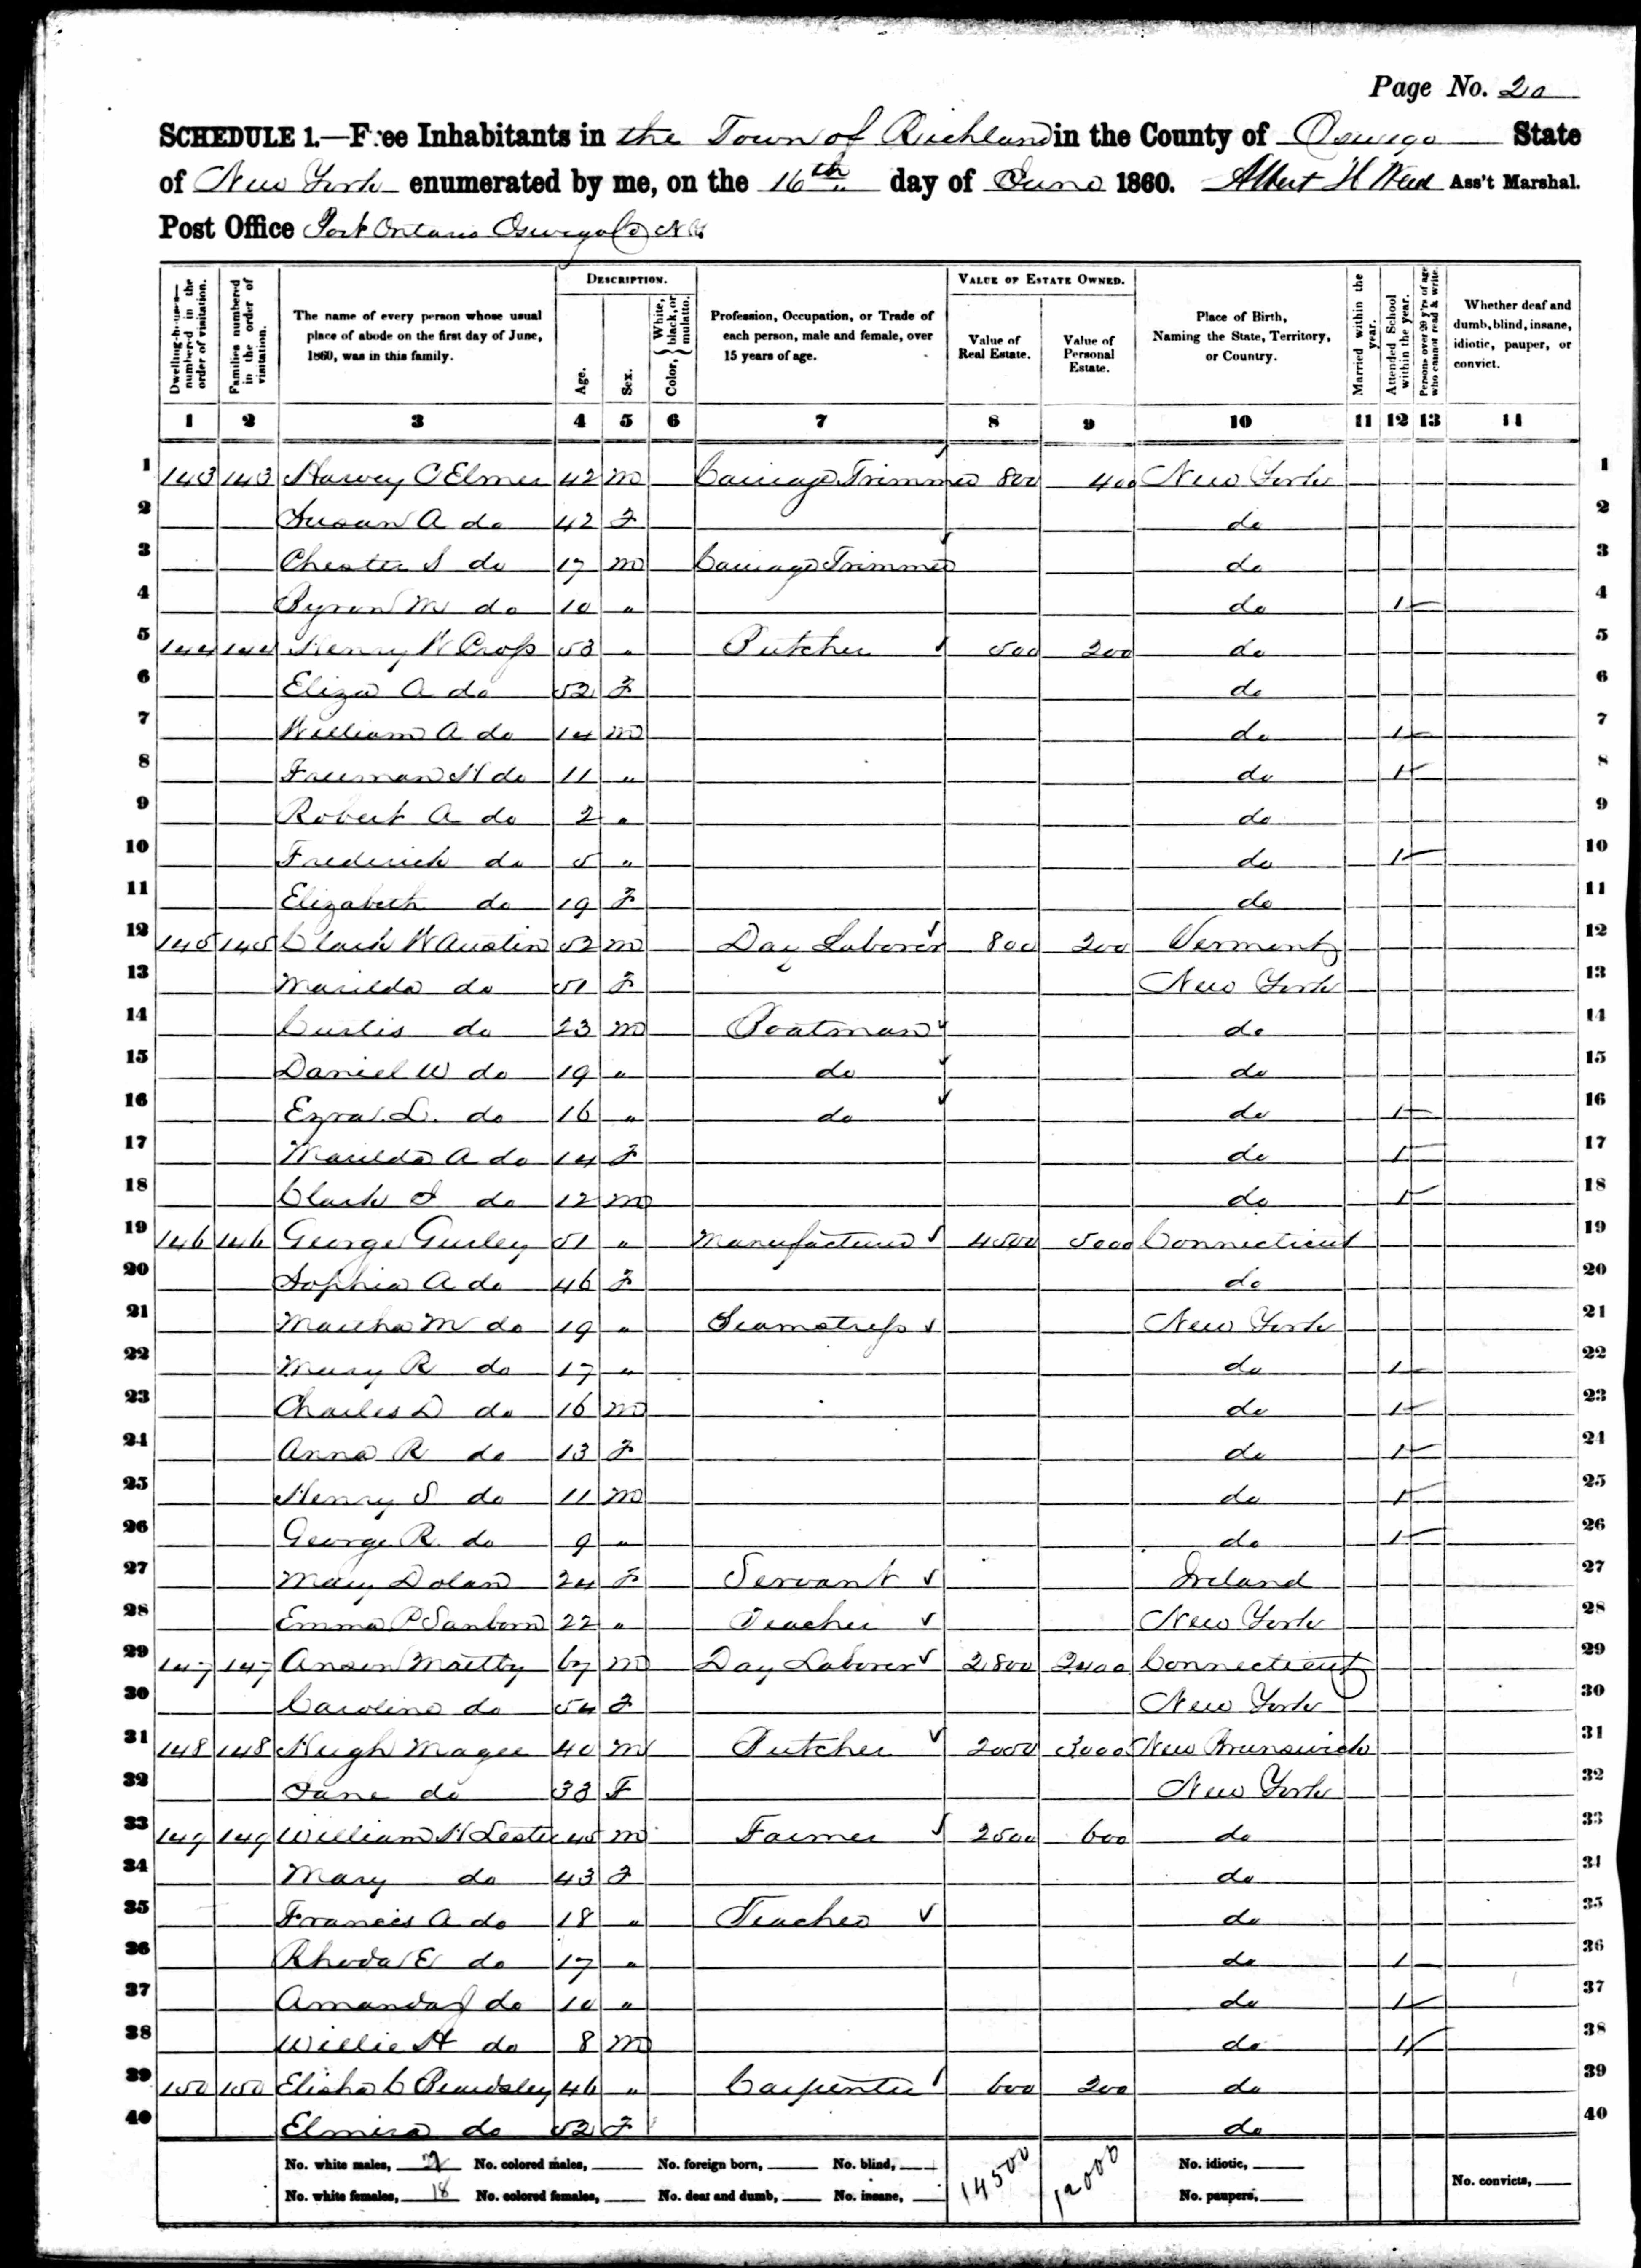 Page No. 20
SCHEDULE 1.—Free Inhabitants in the Town of Richland in the County of Oswego State
of New York enumerated by me, on the 16th day of June 1860. Albert H Weed Ass't Marshal.
Post Office Port Ontario Oswego Co N.Y.
Dwelling-houses—numbered in the order of visitation. Families numbered in the order of visitation. The name of every person whose usual place of abode on the first day of June, 1860, was in this family. DESCRIPTION. Age. Sex. Color, { White, black, or mulatto. Profession, Occupation, or Trade of each person, male and female, over 15 years of age. VALUE OF ESTATE OWNED. Value of Real Estate. Value of Personal Estate. Place of Birth, Naming the State, Territory, or Country. Married within the year. Attended School within the year. Persons over 20 y'rs of age who cannot read & write. Whether deaf and dumb, blind, insane, idiotic, pauper, or convict.
1 2 3 4 5 6 7 8 9 10 11 12 13 14
1 143 143 Harvey C Elmer 42 m Carriage Trimmer 800 400 New York 1
2 Susan A do 42 F do 2
3 Chester S do 17 m Carriage Trimmer do 3
4 Byron M do 10 " do 1 4
5 144 144 Henry W Cross 53 " Butcher 500 200 do 5
6 Eliza A do 52 F do 6
7 William A do 14 m do 1 7
8 Freeman H do 11 " do 1 8
9 Robert A do 2 " do 9
10 Frederick do 5 " do 1 10
11 Elizabeth do 19 F do 11
12 145 145 Clark W Austin 52 m Day Laborer 800 200 Vermont 12
13 Marilda do 51 F New York 13
14 Curtis do 23 m Boatman do 14
15 Daniel W do 19 " do do 15
16 Ezra L. do 16 " do do 1 16
17 Marilda A do 14 F do 1 17
18 Clark J do 12 m do 1 18
19 146 146 George Gurley 51 " Manufacturer 4500 5000 Connecticut 19
20 Sophia A do 46 F do 20
21 Martha M do 19 " Seamstress New York 21
22 Mary R do 17 " do 1 22
23 Charles D do 16 m do 1 23
24 Anna R do 13 F do 1 24
25 Henry S do 11 m do 1 25
26 George R do 9 " do 1 26
27 Mary Dolan 24 F Servant Ireland 27
28 Emma P Sanborn 22 " Teacher New York 28
29 147 147 Anson Maltby 67 m Day Laborer 2800 2400 Connecticut 29
30 Caroline do 54 F New York 30
31 148 148 Hugh Magee 40 m Butcher 2000 3000 New Brunswick 31
32 Jane do 33 F New York 32
33 149 149 William H Lester 45 m Farmer 2500 600 do 33
34 Mary do 43 F do 34
35 Francis A do 18 " Teacher do 35
36 Rhoda E do 17 " do 1 36
37 Amanda J do 10 " do 1 37
38 Willie H do 8 m do 1 38
39 150 150 Elisha C Beardsley 46 " Carpenter 600 200 do 39
40 Elmira do 52 F do 40
No. white males, No. colored males, No. foreign born, No. blind, 14500 12000 No. idiotic,
No. white females, 18 No. colored females, No. deaf and dumb, No. insane, No. paupers, No. convicts,